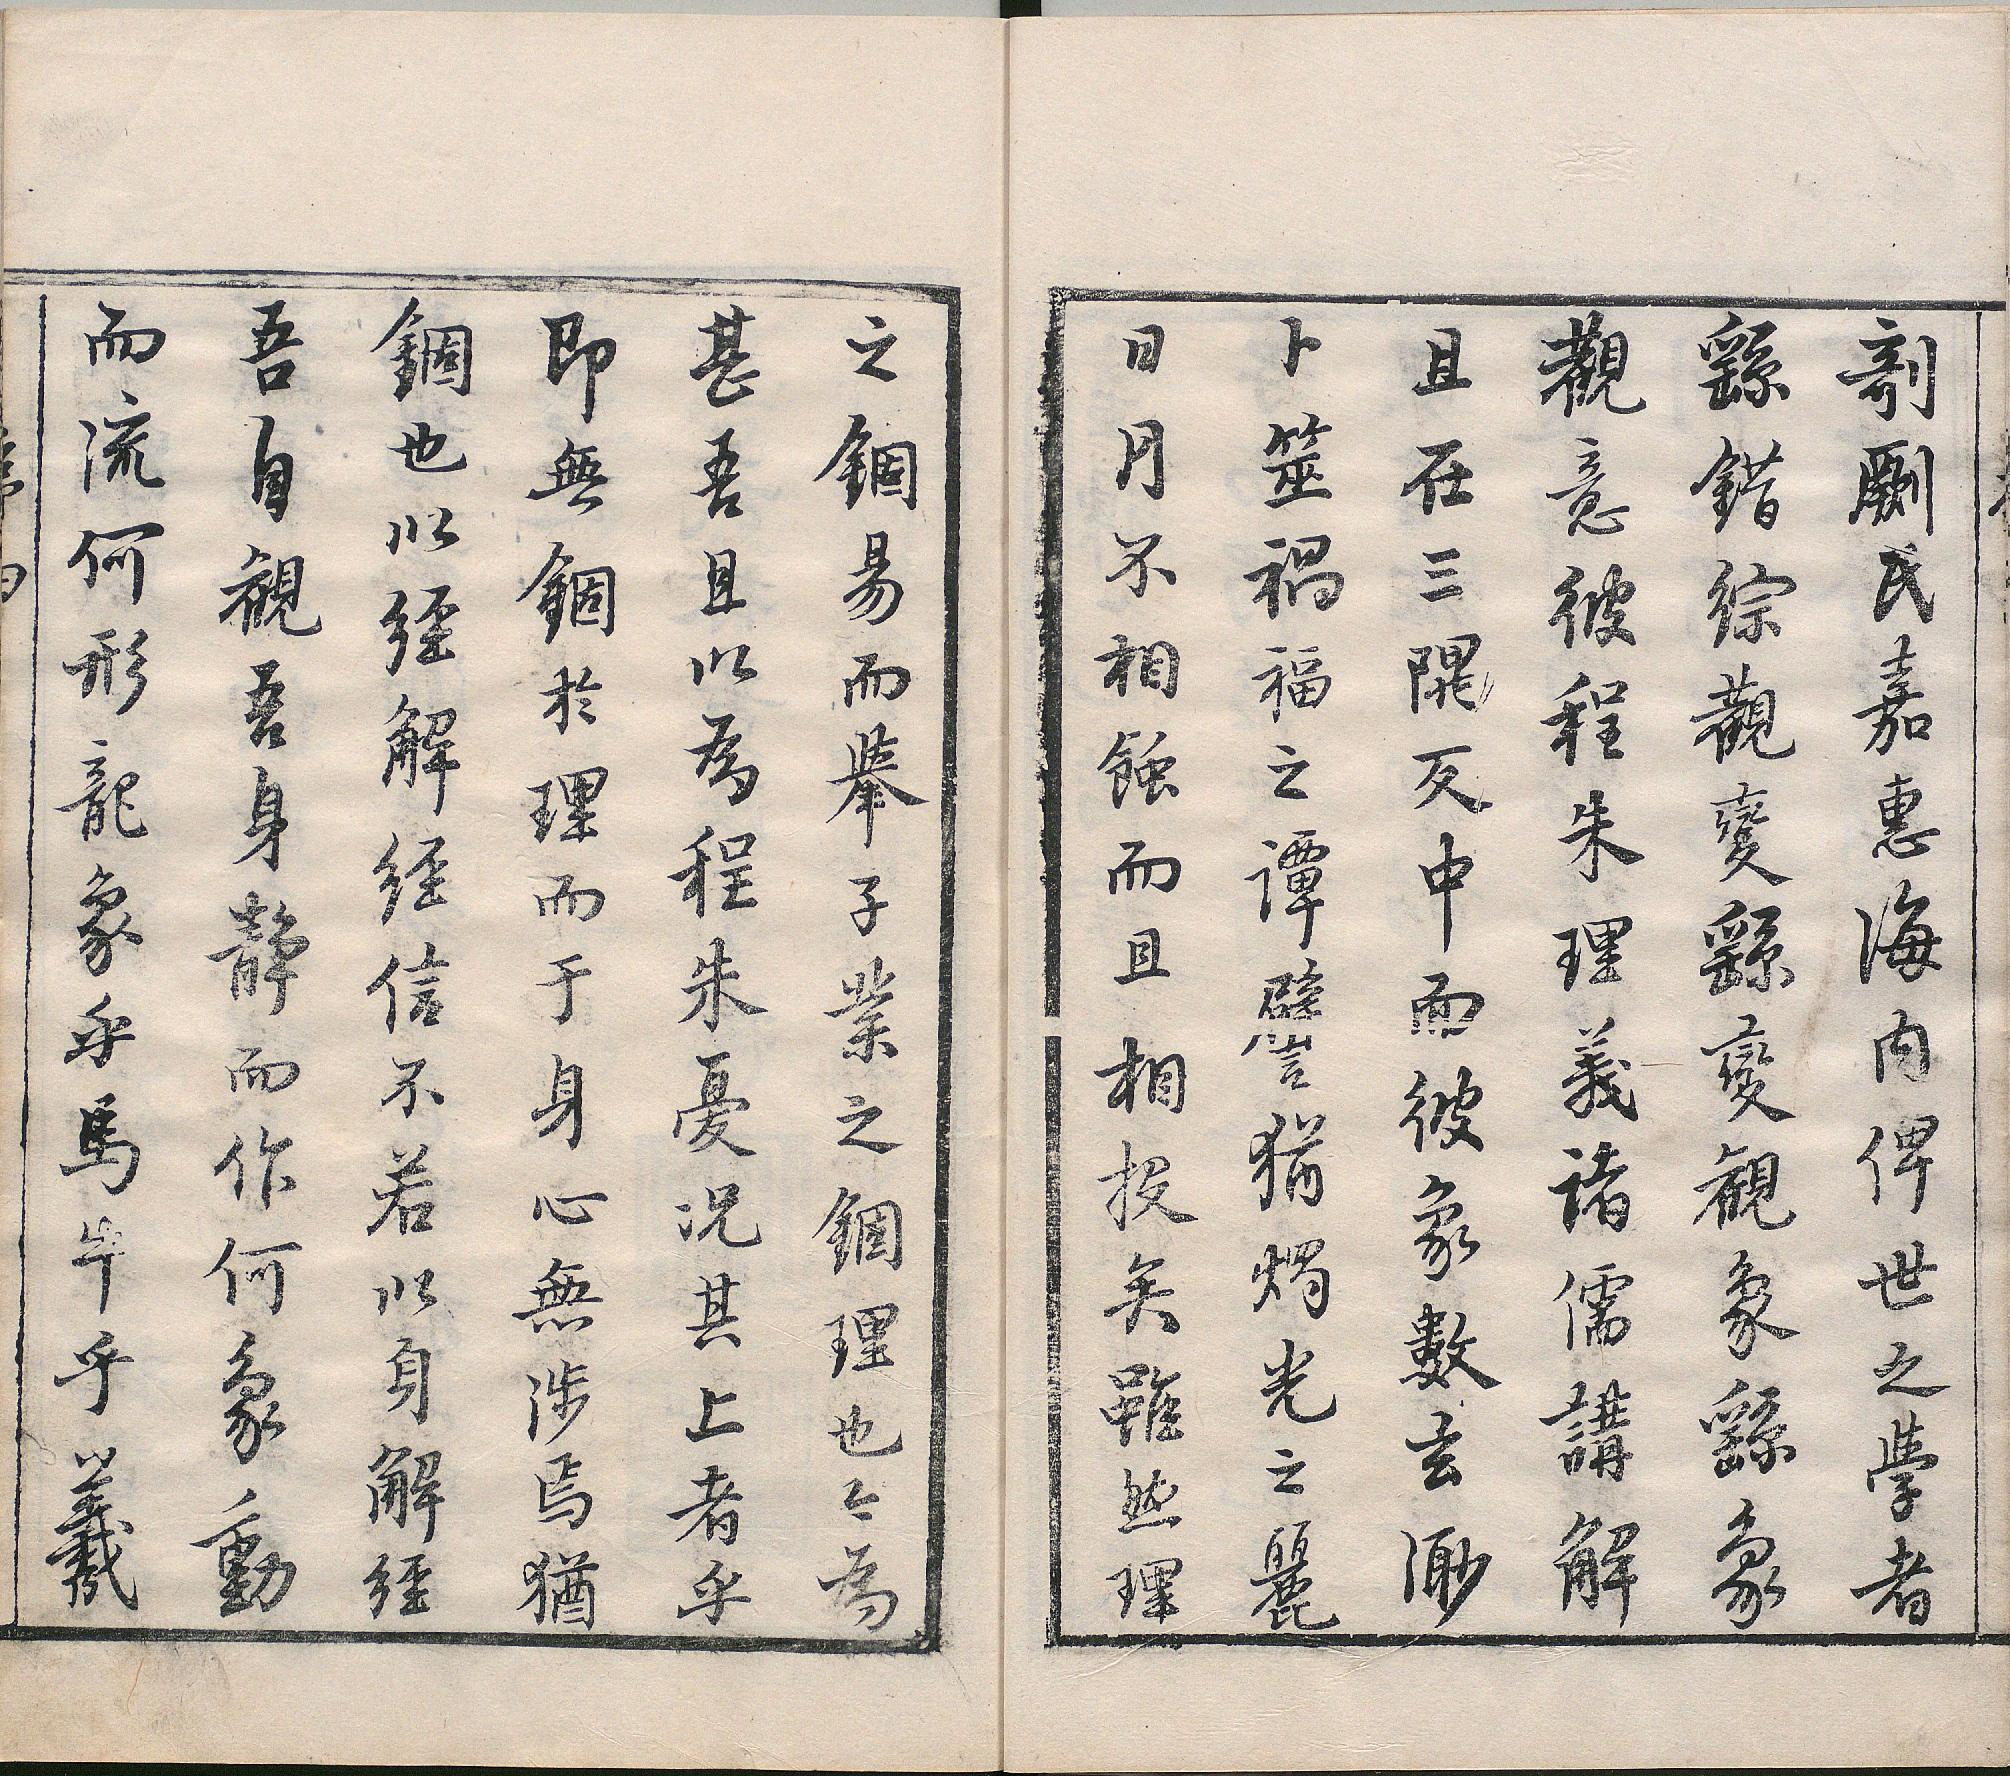 剞劂氏嘉惠海內俾世之學者
繇錯綜觀變繇變觀象繇象
觀意彼程朱理義諸儒講解
且在三隅反中而彼象數玄渺
卜筮禍福之譚譬猶燭光之麗
日月不相蝕而且相投矣雖然理
之錮易而舉子業之錮理也亡為
甚吾且以為程朱憂況其上者乎
即無錮於理而于身心無涉焉猶
錮也以經解經信不若以身解經
吾自觀吾身靜而作何象動
而流何形龍象乎馬牛乎羲